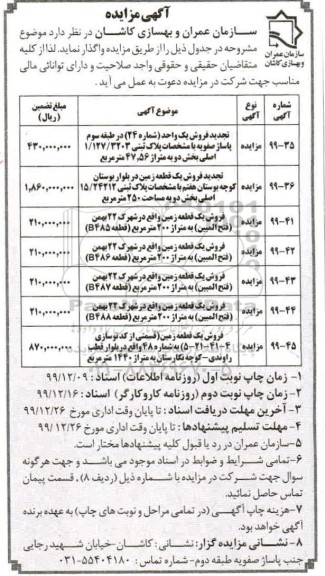 آگهی مزایده
سازمان عمران و بهسازی کاشان در نظر دارد موضوع
مشروحه در جدول ذیل را از طریق مزایده واگذار نماید. لذا از کلیه
متقاضیان حقیقی و حقوقی واجد صلاحیت و دارای توانائی مالی
مناسب جهت شرکت در مزایده دعوت به عمل می آید.
سازمان عمران
و بهسازی کاشان
شماره آگهی نوع آگهی موضوع آگهی مبلغ تضمین (ریال)
۹۹-۳۵ مزایده تجدید فروش یک واحد (شماره ۲۴) در طبقه سوم
پاساژ صفویه با مشخصات پلاک ثبتی ۱/۱۲۷/۳۲۰۳
اصلی بخش دو به متراژ ۴۷,۵۶ مترمربع ۴۳۰,۰۰۰,۰۰۰
۹۹-۳۶ مزایده تجدید فروش یک قطعه زمین در بلوار بوستان
کوچه بوستان هفتم با مشخصات پلاک ثبتی ۱۵/۲۴۲۱۲
اصلی بخش دو به مساحت ۲۵۰ مترمربع ۱,۸۶۰,۰۰۰,۰۰۰
۹۹-۴۱ مزایده فروش یک قطعه زمین واقع در شهرک ۲۲ بهمن
(فتح المبین) به متراژ ۲۰۰ مترمربع (قطعه B۴۸۵) ۲۱۰,۰۰۰,۰۰۰
۹۹-۴۲ مزایده فروش یک قطعه زمین واقع در شهرک ۲۲ بهمن
(فتح المبین) به متراژ ۲۰۰ مترمربع (قطعه B۴۸۶) ۲۱۰,۰۰۰,۰۰۰
۹۹-۴۳ مزایده فروش یک قطعه زمین واقع در شهرک ۲۲ بهمن
(فتح المبین) به متراژ ۲۰۰ مترمربع (قطعه B۴۸۷) ۲۱۰,۰۰۰,۰۰۰
۹۹-۴۴ مزایده فروش یک قطعه زمین واقع در شهرک ۲۲ بهمن
(فتح المبین) به متراژ ۲۰۰ مترمربع (قطعه B۴۸۸) ۲۱۰,۰۰۰,۰۰۰
۹۹-۴۵ مزایده فروش یک قطعه زمین (قسمتی از کد نوسازی
۵-۲۱-۴۱-۴) به شماره ۴۸ واقع در بلوار قطب
راوندی-کوچه نگارستان به متراژ ۱۴۴۰ مترمربع ۸۷۰,۰۰۰,۰۰۰
۱- زمان چاپ نوبت اول (روزنامه اطلاعات) اسناد: ۹۹/۱۲/۰۹
۲- زمان چاپ نوبت دوم (روزنامه کاروکارگر) اسناد: ۹۹/۱۲/۱۶
۳- آخرین مهلت دریافت اسناد: تا پایان وقت اداری مورخ ۹۹/۱۲/۲۶
۴- مهلت تسلیم پیشنهادها: تا پایان وقت اداری مورخ ۹۹/۱۲/۲۶
۵-سازمان عمران در رد یا قبول کلیه پیشنهادها مختار است.
۶-تمامی شرایط و ضوابط در اسناد موجود می باشد و جهت هرگونه
سوال جهت شرکت در مزایده با شماره ذیل (ردیف ۸)، قسمت پیمان
تماس حاصل نمائید.
۷-هزینه چاپ آگهی (در تمامی مراحل و نوبت های چاپ) به عهده برنده
آگهی خواهد بود.
۸-نشانی مزایده گزار: نشانی: کاشان-خیابان شهید رجایی
جنب پاساژ صفویه طبقه دوم-شماره تماس: ۰۳۱-۵۵۴۰۴۱۸۰